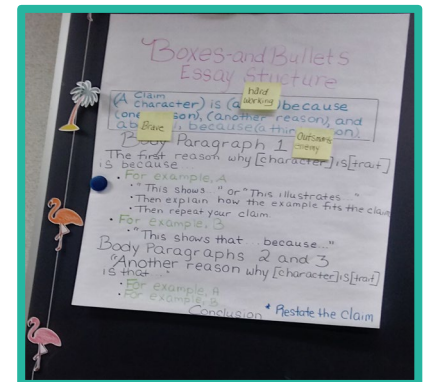 Boxes-and-Bullets
Essay Structure
Claim
hard
working
(A character) is (a because
(one son), (another reason), and
Brave
ab , because (a thir on).
Outsmarts
enemy
Body Paragraph 1
The first reason why [character] is [trait]
is because
• For example, A
• "This shows..." or "This illustrates..."
• Then explain how the example fits the claim
• Then repeat your claim.
• For example, B
• "This shows that because..."
Body Paragraphs 2 and 3
"Another reason why [character] is [trait]
is that..."
• For example, A
• For example, B
Conclusion * Restate the Claim